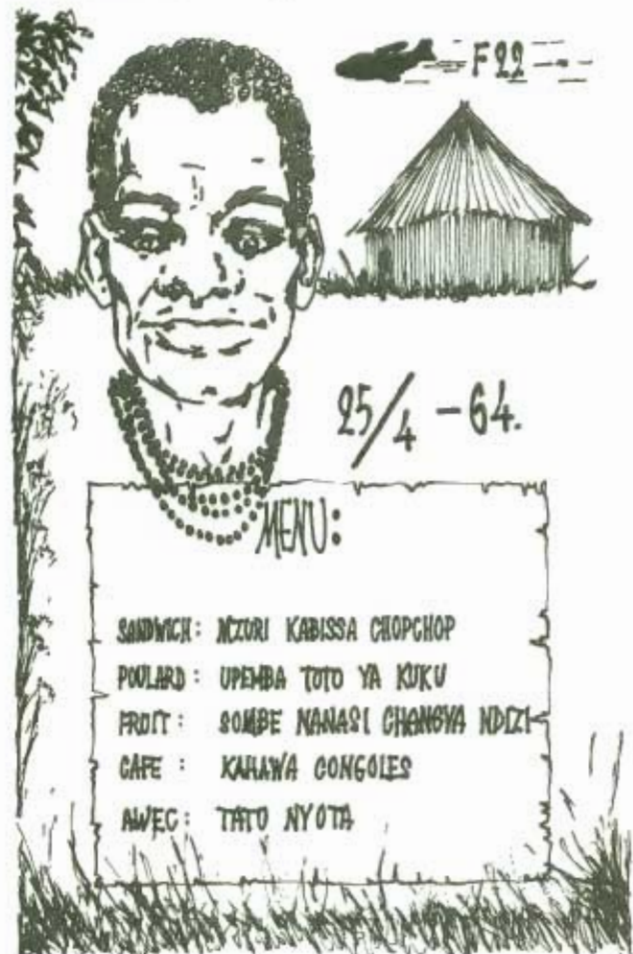 F22
25/4 -64.
MENU:
SANDWICH: MZURI KABISSA CHOPCHOP
POULARD: UPEMBA TOTO YA KUKU
FRUIT: SOMBE NANASI CHANGYA NDIZI
CAFE: KAHAWA CONGOLES
AWEC: TATO NYOTA